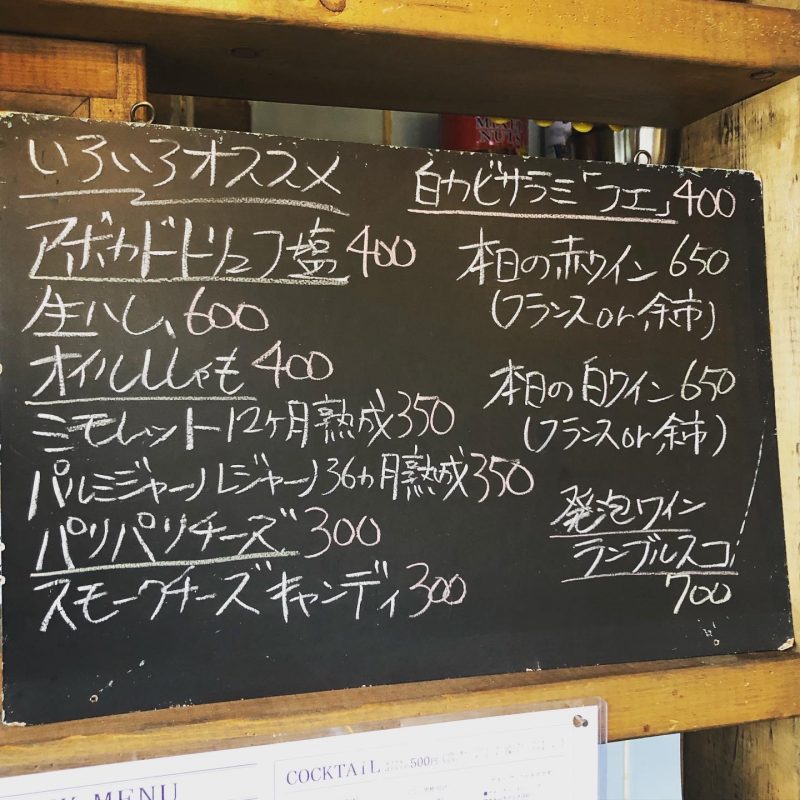 いろいろオススメ
アボカドトリュフ塩 400
生ハム 600
オイルししゃも 400
ミモレット12ヶ月熟成 350
パルミジャーノレジャーノ36ヵ月熟成 350
パリパリチーズ 300
スモークチーズキャンディ 300
白カビサラミ「フエ」400
本日の赤ワイン 650
(フランス or 余市)
本日の白ワイン 650
(フランス or 余市)
発泡ワイン
ランブルスコ
700
MENU
COCKTAIL
500円